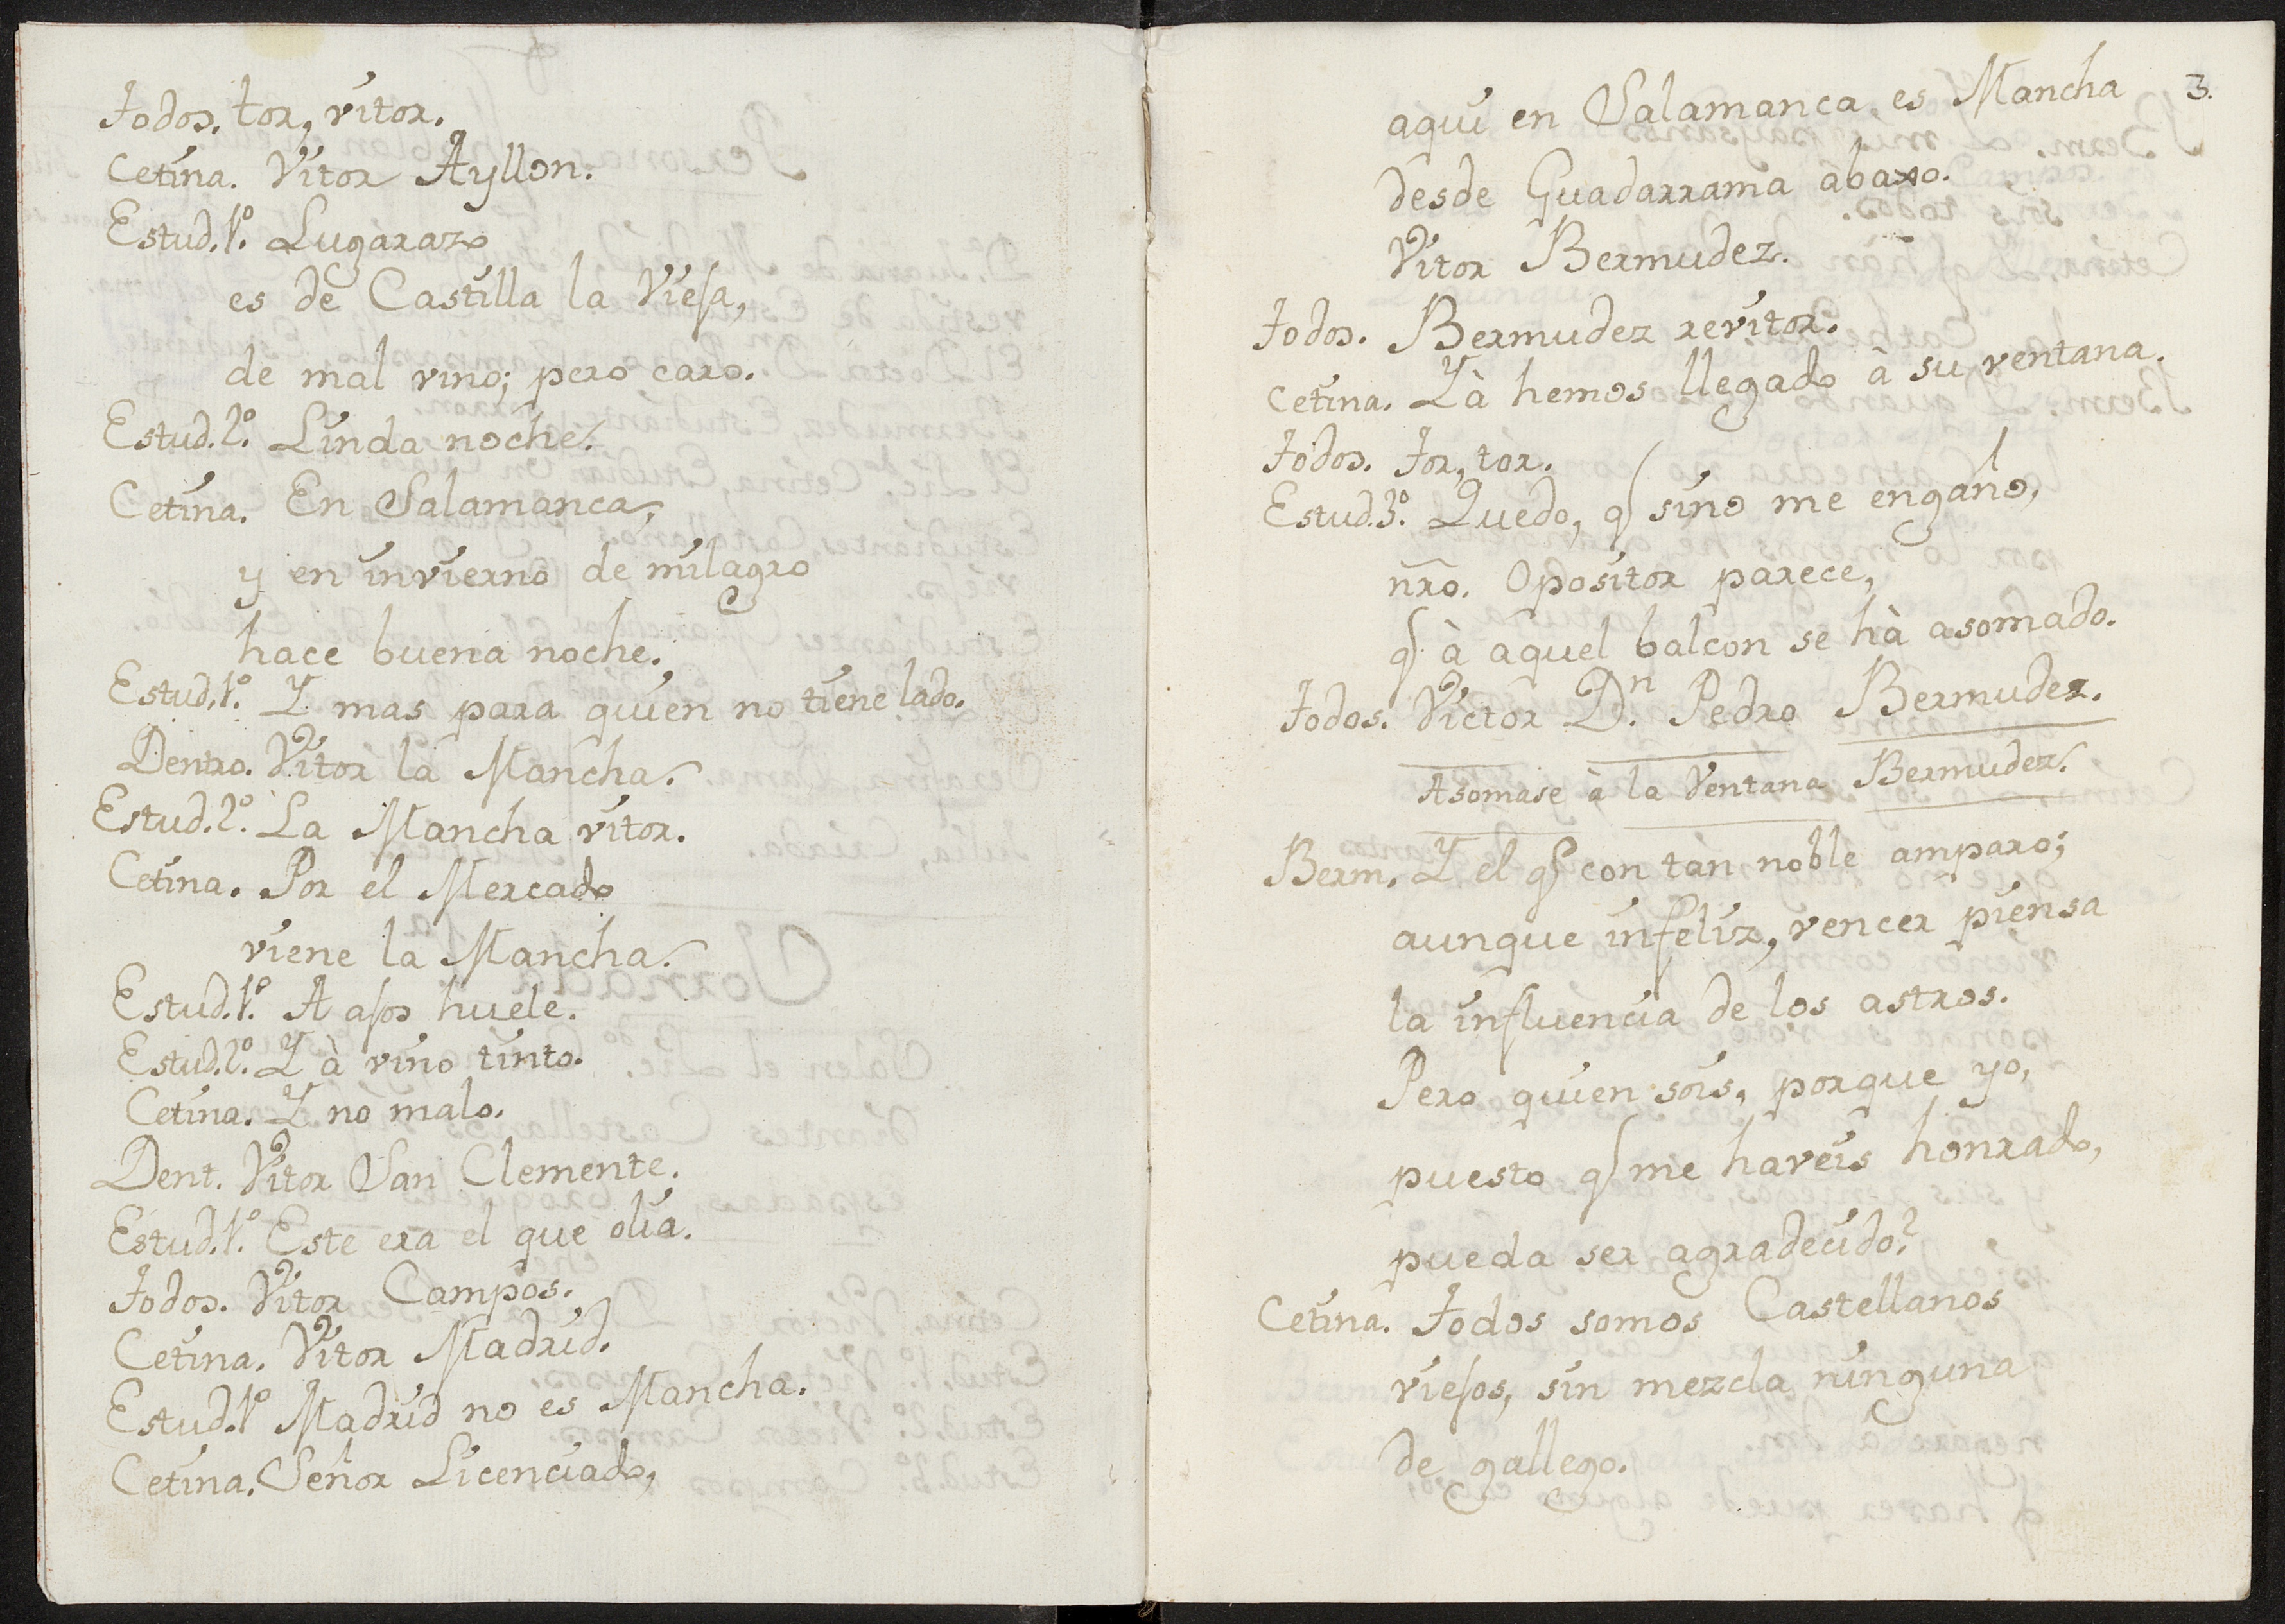 Todos. tor, vitor.
Cetina. Vitor Ayllon.
Estud. 1º. Lugarazo
es de Castilla la Vieja,
de mal vino; pero caro.
Estud. 2º. Linda noche.
Cetina. En Salamanca,
y en invierno de milagro
hace buena noche.
Estud. 1º. Y mas para quien no tiene lado.
Dentro. Vitor la Mancha.
Estud. 2º. La Mancha vitor.
Cetina. Por el Mercado
viene la Mancha.
Estud. 1º. A ajos huele.
Estud. 2º. Y à vino tinto.
Cetina. Y no malo.
Dent. Vitor San Clemente.
Estud. 1º. Este era el que olia.
Todos. Vitor Campos.
Cetina. Vitor Madrid.
Estud. 1º Madrid no es Mancha.
Cetina. Señor Licenciado,
3.
aqui en Salamanca, es Mancha
desde Guadarrama abaxo.
Vitor Bermudez.
Todos. Bermudez revitor.
Cetina. Yà hemos llegado à su ventana.
Todos. Tor, tor.
Estud. 3º. Quedo, q sino me engaño,
nro. Opositor parece,
q à aquel balcon se hà asomado.
Todos. Victor Dn. Pedro Bermudez.
Asomase à la Ventana Bermudez.
Berm. Y el q con tan noble amparo;
aunque infeliz, vencer piensa
la influencia de los astros.
Pero quien sois, porque yo,
puesto q me haveis honrado,
pueda ser agradecido?
Cetina. Todos somos Castellanos
viejos, sin mezcla ninguna
de gallego.